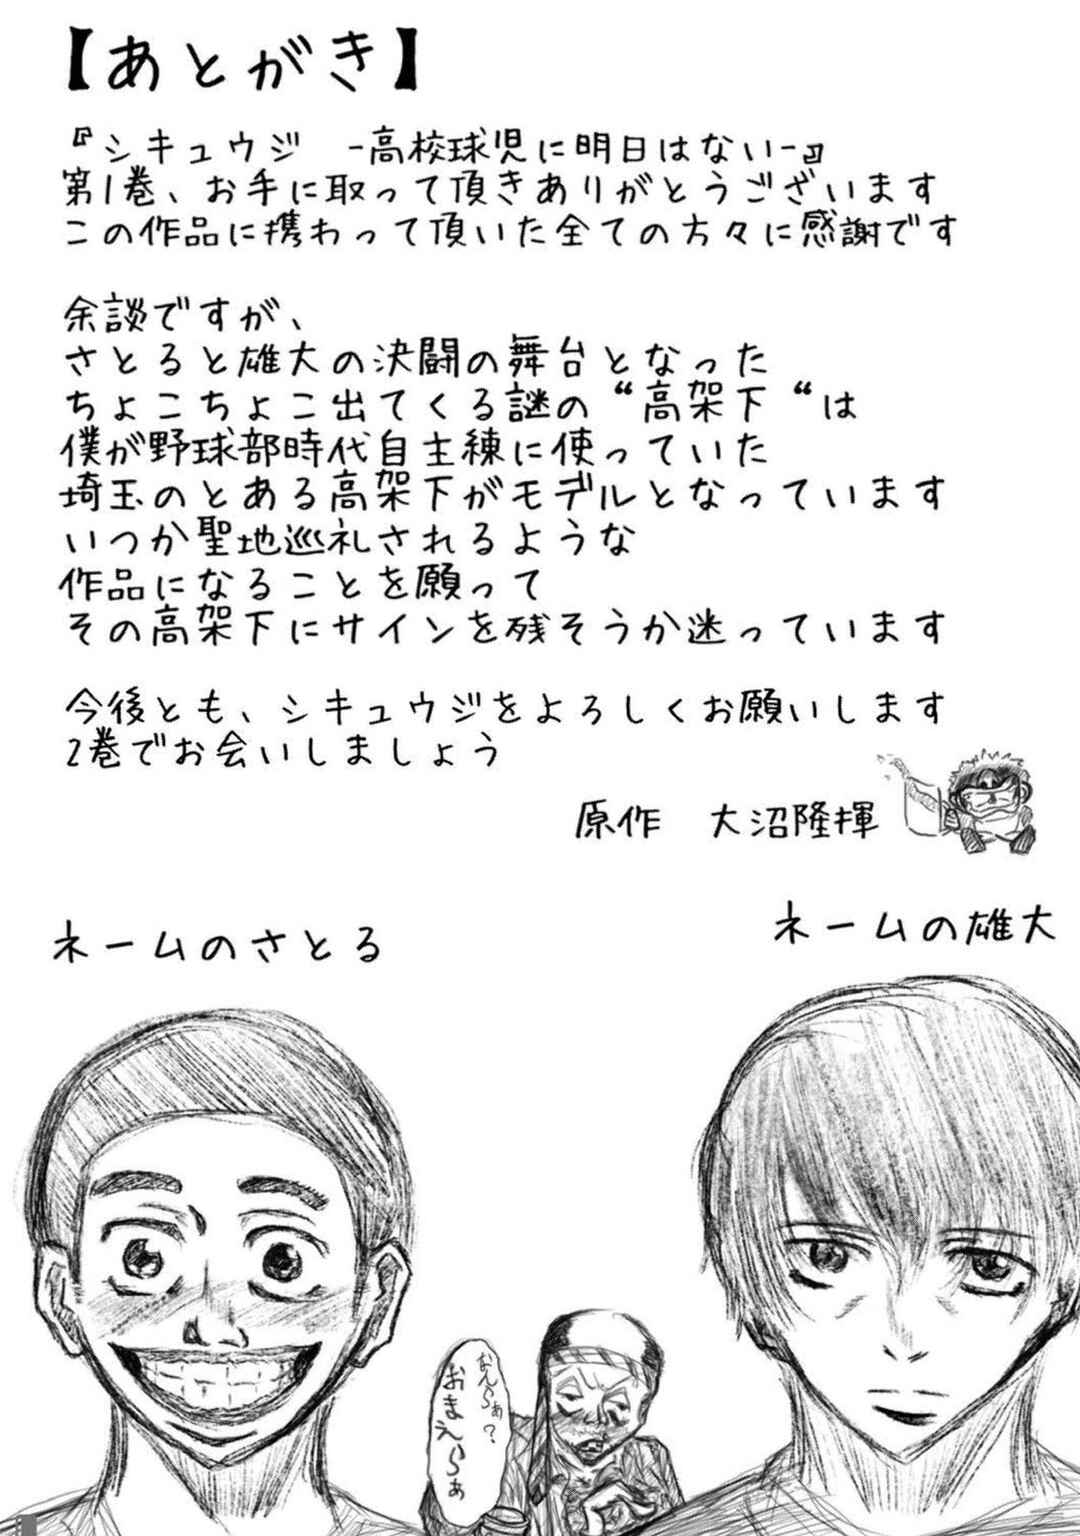 【あとがき】
『シキュウジ -高校球児に明日はない-』
第1巻、お手に取って頂きありがとうございます
この作品に携わって頂いた全ての方々に感謝です
余談ですが、
さとると雄大の決闘の舞台となった
ちょこちょこ出てくる謎の“高架下“は
僕が野球部時代自主練に使っていた
埼玉のとある高架下がモデルとなっています
いつか聖地巡礼されるような
作品になることを願って
その高架下にサインを残そうか迷っています
今後とも、シキュウジをよろしくお願いします
2巻でお会いしましょう
原作 大沼隆揮
ネームのさとる
ネームの雄大
おまえらぁ